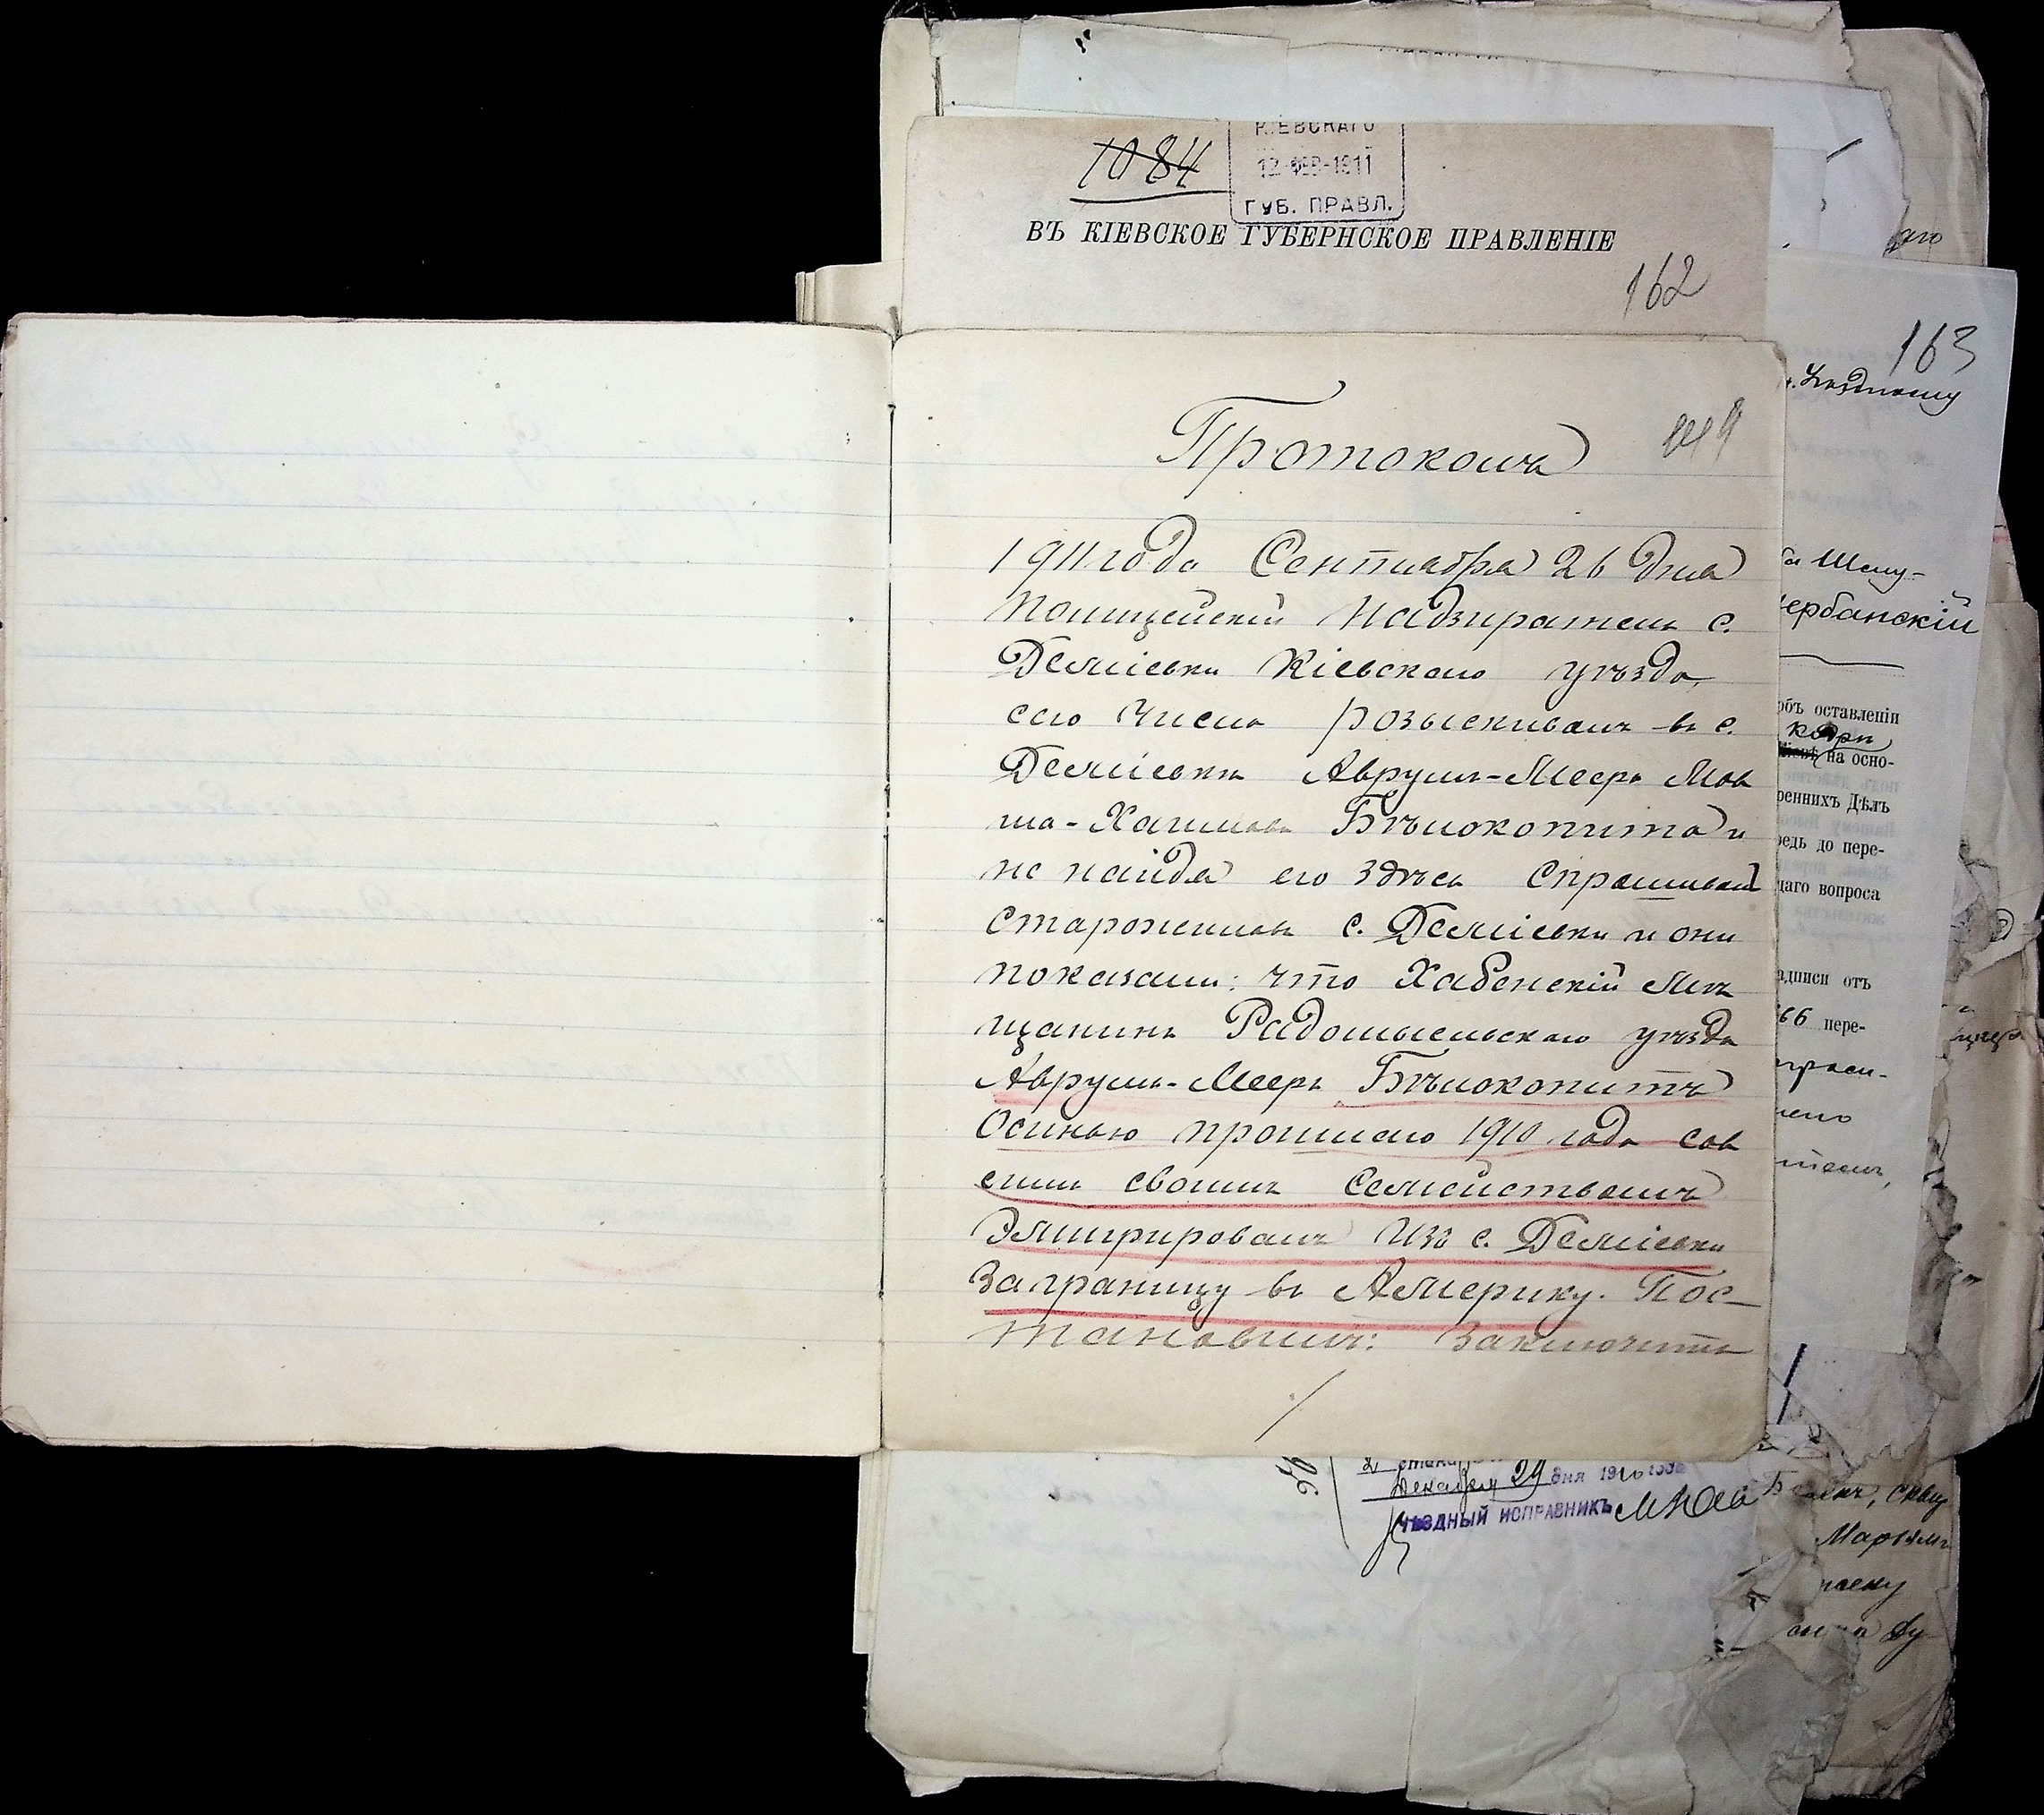 1084
КІЕВСКАГО
12 ФЕВ 1911
ГУБ. ПРАВЛ.
ВЪ КІЕВСКОЕ ГУБЕРНСКОЕ ПРАВЛЕНІЕ
162
163
Протоколъ
1911 года Сентября 26 дня
Полицейскій Надзиратель с.
Деміевки Кіевскаго уѣзда,
сего числа розыскивалъ въ с.
Деміевкѣ Аврумъ-Меера Мов
ша-Хаимова Бѣлокопита и
не найдя его здѣсь спрашивалъ
старожиловъ с. Деміевки и они
показали: что Хабенскій Мѣ
щанинъ Радомысльскаго уѣзда
Аврумъ-Мееръ Бѣлокопитъ
Осинью прошлаго 1910 года сов
сѣмъ своимъ семействомъ
Эмигрировалъ изъ с. Деміевки
Заграницу въ Америку. Пос-
тановилъ: Заключить
ербанскій
объ оставленіи
на осно-
реннихъ Дѣлъ
редь до пере-
щаго вопроса
адписи отъ
66 пере-
Декабря 29 дня 1910 года
УѢЗДНЫЙ ИСПРАВНИКЪ